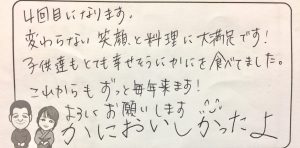 4回目になります。
変わらない笑顔と料理に大満足です!
子供達もとても幸せそうにかにを食べてました。
これからもずっと毎年来ます!
よろしくお願いします
かにおいしかったよ